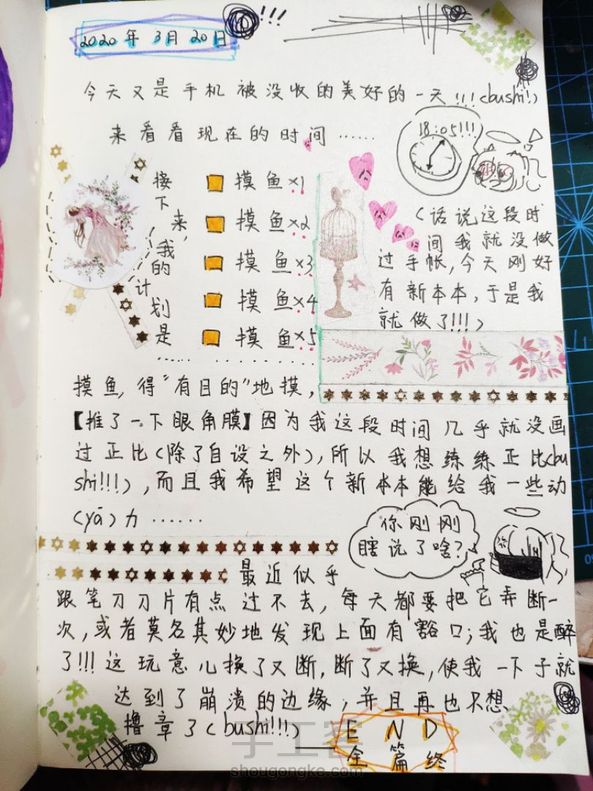 2020年3月20日
!!!
今天又是手机被没收的美好的一天!!!(bushi!)
来看看现在的时间……
18:05!!!
接下来,我的计划是
摸鱼×1
摸鱼×2
摸鱼×3
摸鱼×4
摸鱼×5
……………………
(话说这段时
间我就没做
过手帐,今天刚好
有新本本,于是我
就做了!!!)
摸鱼,得“有目的”地摸,
【推了一下眼角膜】因为我这段时间几乎就没画
过正比(除了自设之外),所以我想练练正比(bu
shi!!!),而且我希望这个新本本能给我一些动
(yā)力……
你刚刚
瞎说了啥?
最近似乎
跟笔刀刀片有点过不去,每天都要把它弄断一
次,或者莫名其妙地发现上面有豁口;我也是醉
了!!!这玩意儿换了又断,断了又换,使我一下子就
达到了崩溃的边缘,并且再也不想
撸章了(bushi!!!)
END
全篇终
手工客
shougongke.com